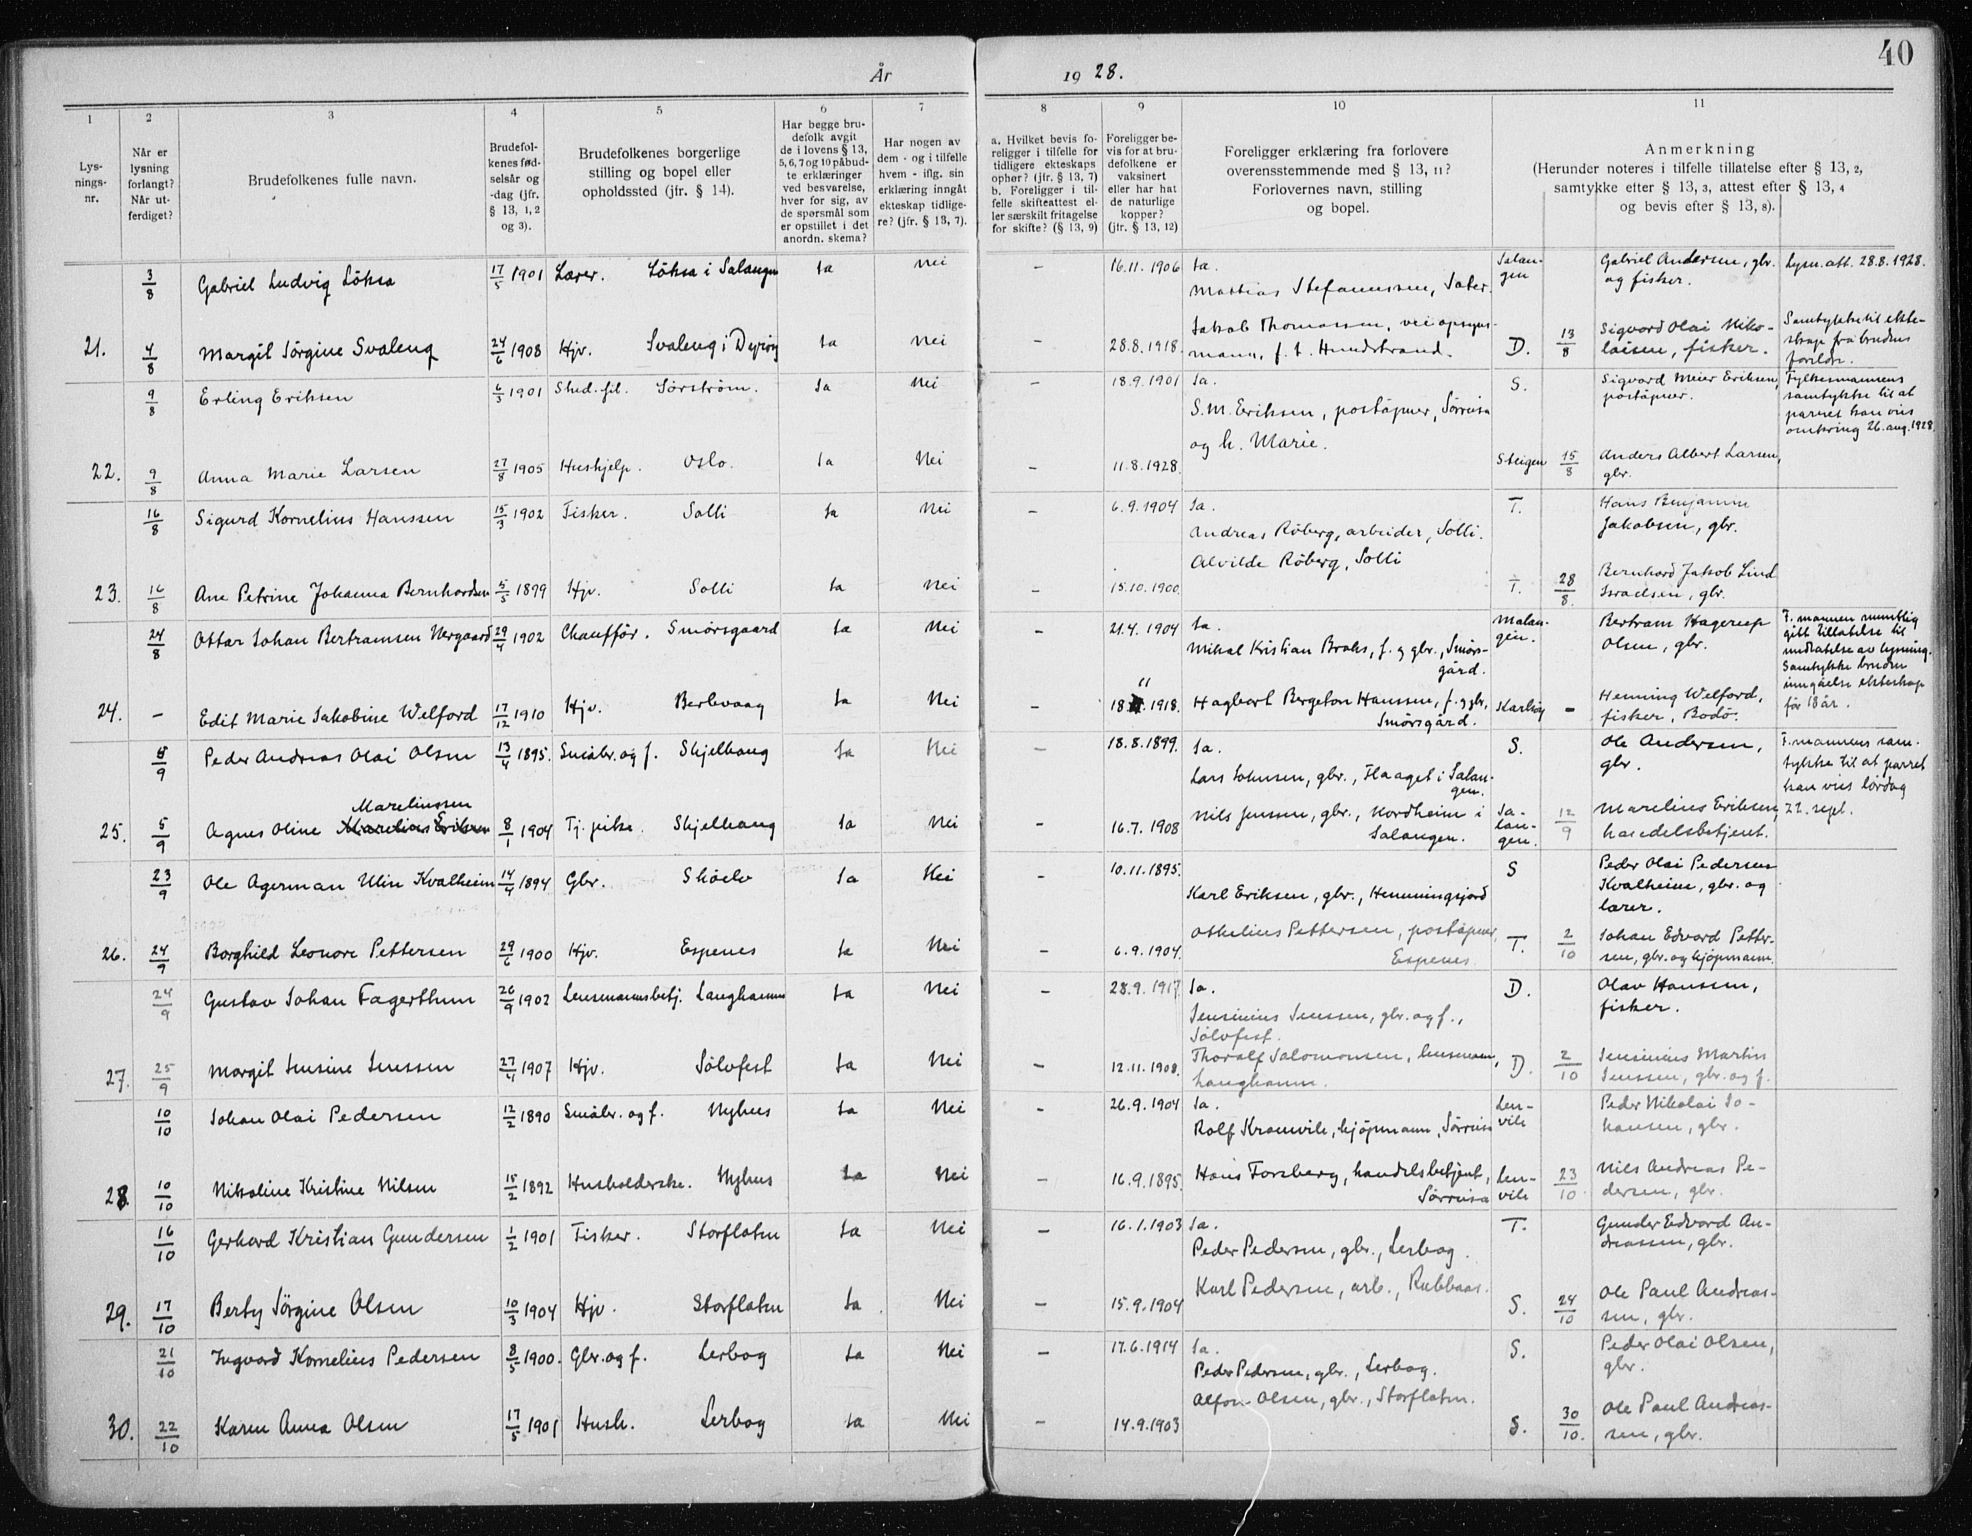 40
År 1928.
1 2 3 4 5 6 7 8 9 10 11
Lysnings-nr.
Når er lysning forlangt? Når utferdiget?
Brudefolkenes fulle navn.
Brudefolkenes fødselsår og -dag (jfr. § 13, 1, 2 og 3).
Brudefolkenes borgerlige stilling og bopel eller opholdssted (jfr. § 14).
Har begge brudefolk avgit de i lovens § 13, 5, 6, 7 og 10 påbudte erklæringer ved besvarelse, hver for sig, av de spørsmål som er opstillet i det anordn. skema?
Har nogen av dem - og i tilfelle hvem - iflg. sin erklæring inngåt ekteskap tidligere? (jfr. § 13, 7).
a. Hvilket bevis foreligger i tilfelle for tidligere ekteskaps ophør? (jfr. § 13, 7) b. Foreligger i tilfelle skifteattest eller særskilt fritagelse for skifte? (§ 13, 9)
Foreligger bevis for at brudefolkene er vaksinert eller har hat de naturlige kopper? (jfr. § 13, 12)
Foreligger erklæring fra forlovere overensstemmende med § 13, 11? Forlovernes navn, stilling og bopel.
Anmerkning (Herunder noteres i tilfelle tillatelse efter § 13, 2, samtykke efter § 13, 3, attest efter § 13, 4 og bevis efter § 13, 8).
3/8 Gabriel Ludvig Löksa 17/5 1901 Lærer. Löksa i Salangen Ja Nei – 16.11.1906 Ja. Mathias Stefanussen, Sæter. Salangen Gabriel Andersen, gbr. og fisker. Lysn. att. 28.8.1928.
21. 4/8 Margit Jörgine Svaleng 24/6 1908 Hjv. Svaleng i Dyröy Ja Nei – 28.8.1918. Jakob Thomassen, veiopsynsmann, f. t. Hundstrand. D. 13/8 Sigvard Olai Nikolaisen, fisker. Samtykke til ekteskap fra brudens foreldr.
9/8 Erling Eriksen 6/3 1901 Stud. fil. Sörström. Ja Nei – 18.9.1901 Ja. S. M. Eriksen, poståpner, Sörreisa og h. Marie. S. Sigvard Meier Eriksen, poståpner. Fylkesmannens samtykke til at parret kan vies omkring 26. aug. 1928.
22. 9/8 Anna Marie Larsen 27/8 1905 Hushjelp. Oslo. Ja Nei – 11.8.1928. Steigen 15/8 Anders Albert Larsen, gbr.
16/8 Sigurd Kornelius Hanssen 15/3 1902 Fisker. Solli Ja Nei – 6.9.1904 Ja. Andreas Röberg, arbeider, Solli. Alvilde Röberg, Solli T. Hans Benjamin Jakobsen, gbr.
23. 16/8 Ane Petrine Johanna Bernhardsen 5/5 1899 Hjv. Solli Ja Nei – 15.10.1900. T. 28/8. Bernhard Jakob Lind Israelsen, gbr.
24/8 Ottar Johan Bertramsen Nergaard 29/4 1902 Chaufför. Smörsgaard Ja Nei – 21.4.1904 Ja. Mikal Kristian Broks, f. og gbr., Smörsgård. Malangen. Bertram Hagerup Olsen, gbr. F.mannen muntlig gitt tillatelse til undlatelse av lysning. Samtykke bruden inngåelse ekteskap før 18 år.
24. – Edit Marie Jakobine Welford 17/12 1910 Hjv. Berlevaag Ja Nei – 18.11.1918. Hagbart Bergeton Hanssen, f. og gbr, Smörsgård. Karlsöy – Henning Welford, fisker, Bodö.
5/9 Peder Andreas Olai Olsen 13/4 1895. Småbr. og f. Skjelhaug Ja Nei – 18.8.1899. Ja. Lars Johnsen, gbr., Haaget i Salangen. S. Ole Andersen, gbr. F.mannens samtykke til at parret kan vies lördag 22. sept.
25. 5/9 Agnes Oline Marelius Eriksen Mareliussen 8/1 1904 Tj. pike. Skjelhaug Ja Nei – 16.7.1908 Nils Jensen, gbr., Nordheim i Salangen. Salangen. 12/9 Marelius Eriksen, handelsbetjent.
23/9 Ole Agerman Ulin Kvalheim 14/4 1894 Gbr. Sköelv Ja Nei – 10.11.1895. Karl Eriksen, gbr., Hemmingsjord S Peder Olai Pedersen Kvalheim, gbr. og lærer.
26. 24/9 Borghild Leonore Pettersen 29/6 1900 Hjv. Espenes Ja Nei – 6.9.1904. Othelius Pettersen, poståpner, Espenes T. 2/10 Johan Edvard Pettersen, gbr. og kjöpmann.
24/9 Gustav Johan Fagerthun 26/9 1902 Lensmannsbetj. Langhamn Ja Nei – 28.9.1917 Ja. Jensinius Jenssen, gbr. og f., Sölvfest. D. Olav Hanssen, fisker.
27. 25/9 Margit Jensine Jenssen 27/4 1907 Hjv. Sölvfest Ja Nei – 12.11.1908. Thoralf Salomonsen, lensmann, Langhamn. D. 2/10 Jensinius Martin Jenssen, gbr. og f.
10/10 Johan Olai Pedersen 12/2 1890 Småbr. og f. Nyhus Ja Nei – 26.9.1904 Ja. Rolf Kramvik, kjöpmann, Sörreisa Lenvik Peder Nikolai Johansen, gbr.
28. 10/10 Nikoline Kristine Nilsen 15/2 1892 Husholderske. Nyhus Ja Nei – 16.9.1895. Hans Forsberg, handelsbetjent, Sörreisa Lenvik 23/10. Nils Andreas Pedersen, gbr.
16/10 Gerhard Kristian Gundersen 1/2 1901 Fisker. Storflaten Ja Nei – 16.1.1903 Ja. Peder Pedersen, gbr., Lerbog. T. Gunder Edvard Andreassen, gbr.
29. 17/10 Berty Jörgine Olsen 10/3 1904 Hjv. Storflaten Ja Nei – 15.9.1904 Karl Pedersen, arb., Rubbaas. S. 24/10 Ole Paul Andreassen, gbr.
21/10 Ingvard Kornelius Pedersen 8/5 1900. Gbr. og f. Lerbog Ja Nei – 17.6.1914 Ja. Peder Pedersen, gbr., Lerbog. S. Peder Olai Olsen, gbr.
30. 22/10 Karen Anna Olsen 17/5 1901 Hush. Lerbog Ja Nei – 14.9.1903 Alfon Olsen, gbr., Storflaten. S. 30/10. Ole Paul Andreassen, gbr.